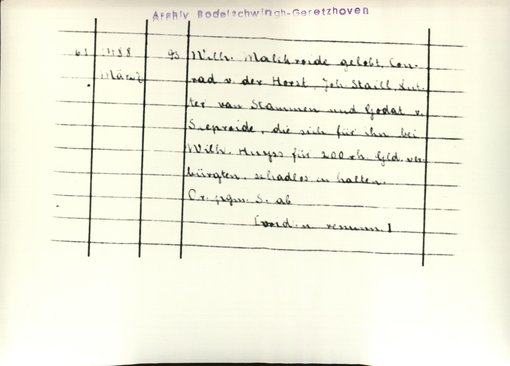 Archiv Bodelschwingh-Geretzhoven
61 1488 93 Wilh. Malekroide gelobt, Con-
März rad v. der Horst, Joh. Staill, Lut-
ter van Stammen und Godat v.
Sieproide, die sich für ihn bei
Wilh. Huyss für 200 rh. Gld. ver-
bürgten, schadlos zu halten.
Or. prgm. S. ab